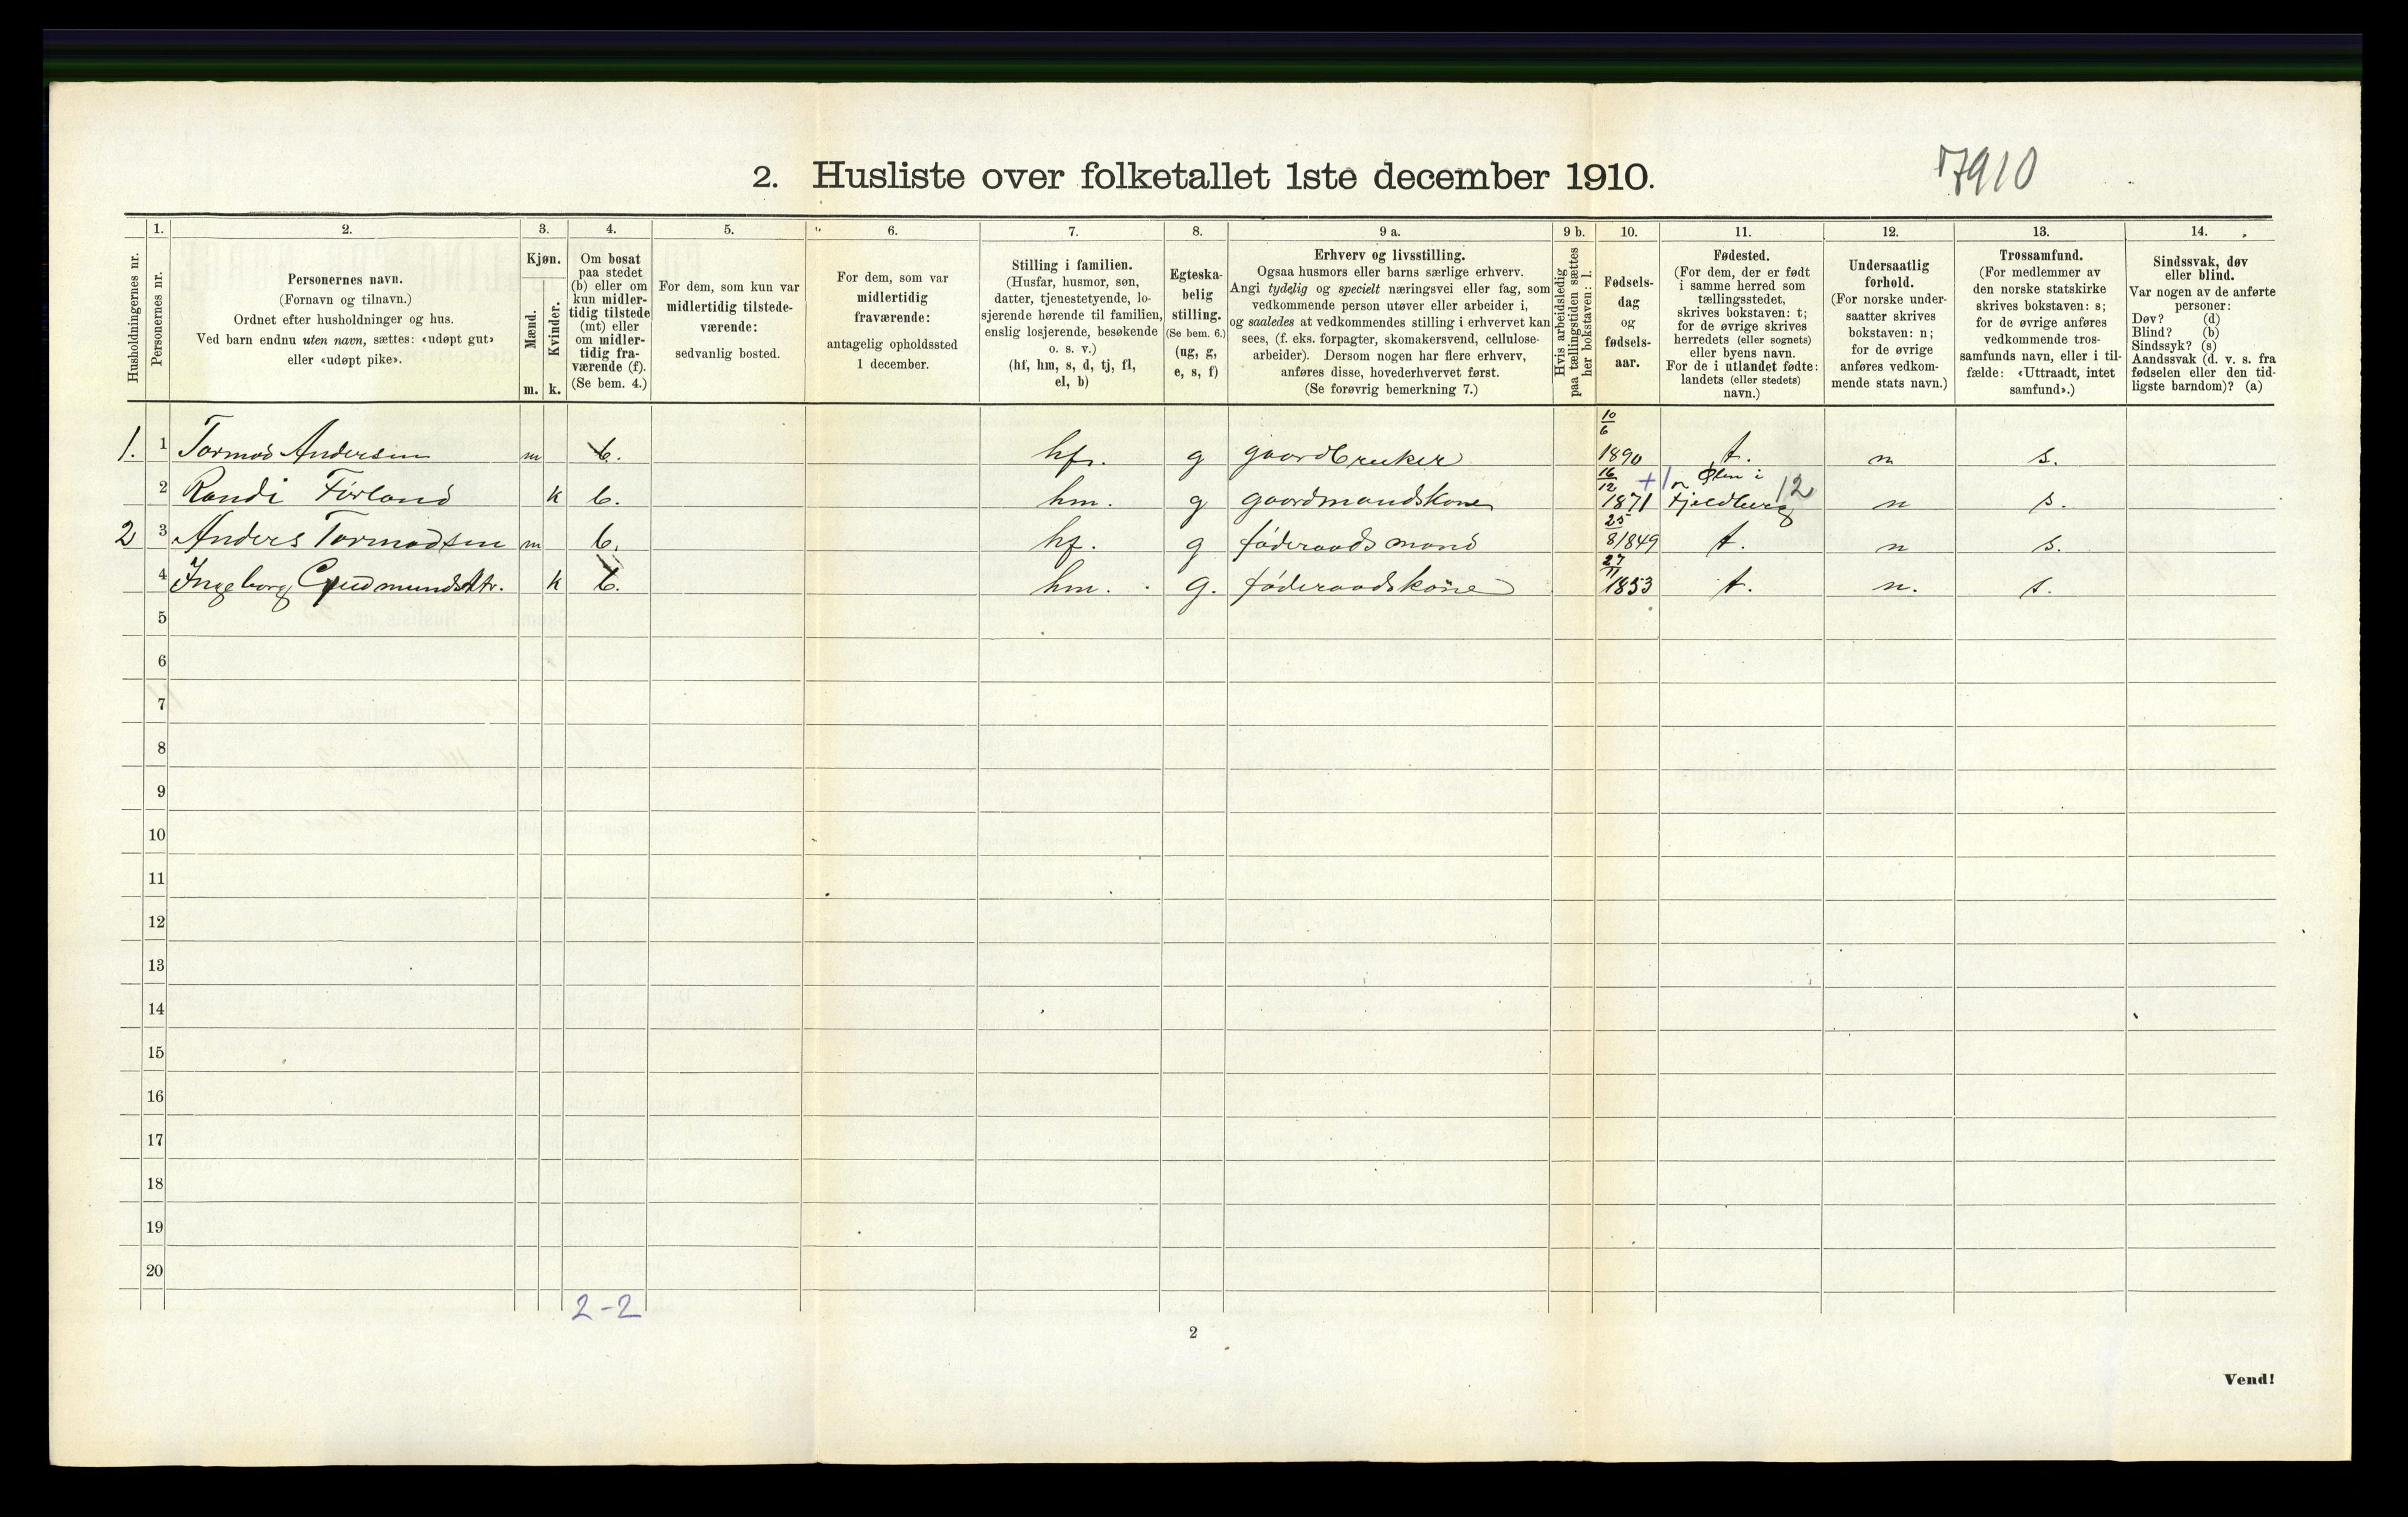 2. Husliste over folketallet 1ste december 1910.
7910
Husholdningernes nr.
1.
Personernes nr.
2.
Personernes navn.
(Fornavn og tilnavn.)
Ordnet efter husholdninger og hus.
Ved barn endnu uten navn, sættes: «udøpt gut»
eller «udøpt pike».
3.
Kjøn.
Mænd.
Kvinder.
m. k.
4.
Om bosat
paa stedet
(b) eller om
kun midler-
tidig tilstede
(mt) eller
om midler-
tidig fra-
værende (f).
(Se bem. 4.)
5.
For dem, som kun var
midlertidig tilstede-
værende:
sedvanlig bosted.
6.
For dem, som var
midlertidig
fraværende:
antagelig opholdssted
1 december.
7.
Stilling i familien.
(Husfar, husmor, søn,
datter, tjenestetyende, lo-
sjerende hørende til familien,
enslig losjerende, besøkende
o. s. v.)
(hf, hm, s, d, tj, fl,
el, b)
8.
Egteska-
belig
stilling.
(Se bem. 6.)
(ug, g,
e, s, f)
9 a.
Erhverv og livsstilling.
Ogsaa husmors eller barns særlige erhverv.
Angi tydelig og specielt næringsvei eller fag, som
vedkommende person utøver eller arbeider i,
og saaledes at vedkommendes stilling i erhvervet kan
sees, (f. eks. forpagter, skomakersvend, cellulose-
arbeider). Dersom nogen har flere erhverv,
anføres disse, hovederhvervet først.
(Se forøvrig bemerkning 7.)
9 b.
Hvis arbeidsledig
paa tællingstiden sættes
her bokstaven: l.
10.
Fødsels-
dag
og
fødsels-
aar.
11.
Fødested.
(For dem, der er født
i samme herred som
tællingsstedet,
skrives bokstaven: t;
for de øvrige skrives
herredets (eller sognets)
eller byens navn.
For de i utlandet fødte:
landets (eller stedets)
navn.)
12.
Undersaatlig
forhold.
(For norske under-
saatter skrives
bokstaven: n;
for de øvrige
anføres vedkom-
mende stats navn.)
13.
Trossamfund.
(For medlemmer av
den norske statskirke
skrives bokstaven: s;
for de øvrige anføres
vedkommende tros-
samfunds navn, eller i til-
fælde: «Uttraadt, intet
samfund».)
14.
Sindssvak, døv
eller blind.
Var nogen av de anførte
personer:
Døv? (d)
Blind? (b)
Sindssyk? (s)
Aandssvak (d. v. s. fra
fødselen eller den tid-
ligste barndom)? (a)
1. 1 Tormod Andersen m b. hf. g gaardbruker 10/6 1890 t. n s.
2 Randi Førland k b. hm. g gaardmandskone 16/12 1871 Ølen i Fjeldberg 12 n s.
2 3 Anders Tormodsen m b. hf. g føderaadsmand 25/8 1849 t. n s.
4 Ingeborg Gudmundsdtr. k b. hm. g. føderaadskone 27/11 1853 t. n. s.
5
6
7
8
9
10
11
12
13
14
15
16
17
18
19
20
2-2
2
Vend!